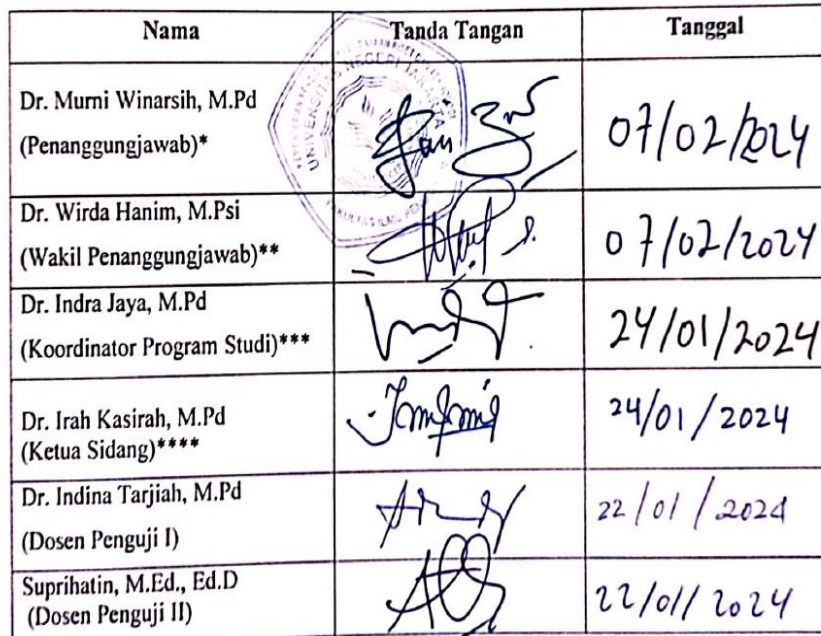 Nama Tanda Tangan Tanggal
Dr. Murni Winarsih, M.Pd
(Penanggungjawab)* 07/02/2024
Dr. Wirda Hanim, M.Psi
(Wakil Penanggungjawab)** 07/02/2024
Dr. Indra Jaya, M.Pd
(Koordinator Program Studi)*** 24/01/2024
Dr. Irah Kasirah, M.Pd
(Ketua Sidang)**** 24/01/2024
Dr. Indina Tarjiah, M.Pd
(Dosen Penguji I) 22/01/2024
Suprihatin, M.Ed., Ed.D
(Dosen Penguji II) 22/01/2024
UNIVERSITAS NEGERI JAKARTA